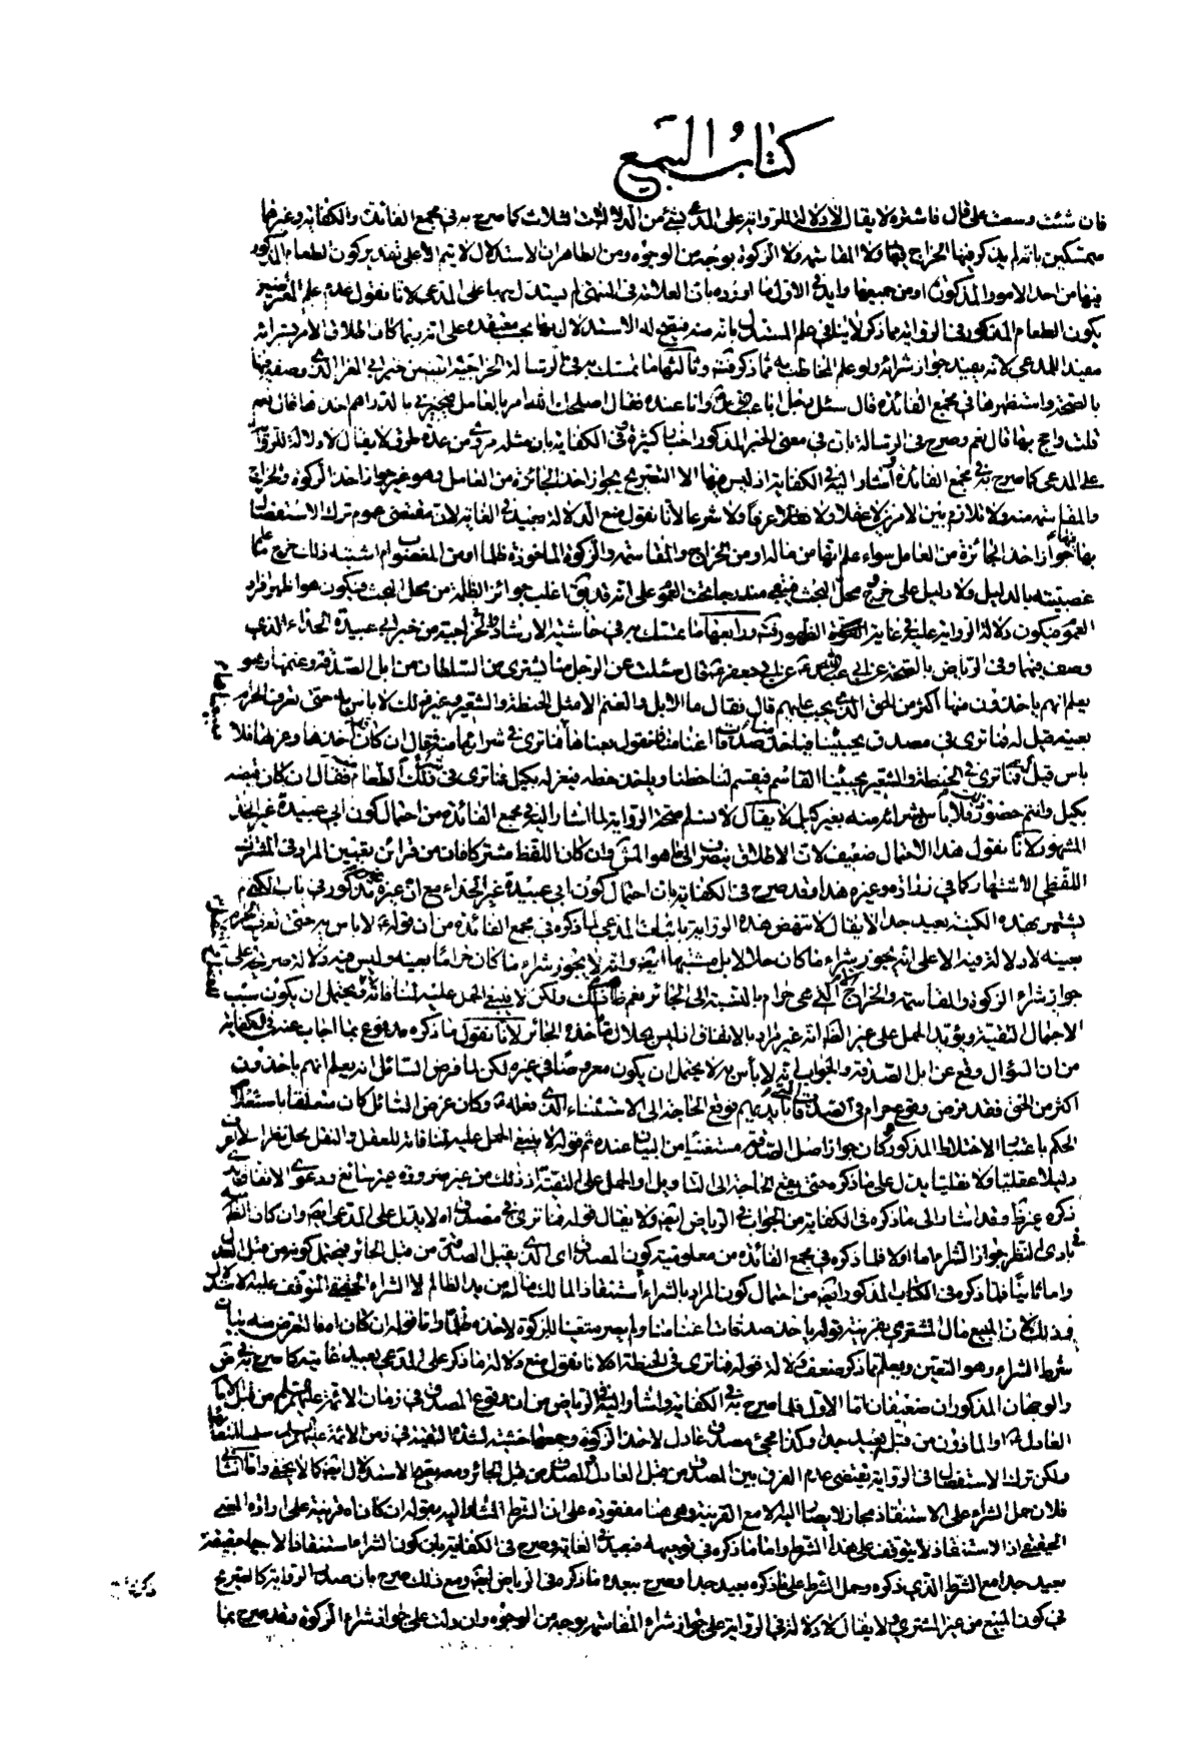 كتاب البيع
فان شئت وسعت على قال فاشتره لا يقال لا دلالة للرواية على المدعى بشئ من الدلالات الثلاث كما صرح به في مجمع الفائدة والكفاية وغيرهما
متمسكين بانه لم يذكر فيها الخراج بيها ولا المقاسمة ولا الزكوة بوجه من الوجوه ومن الظاهر ان الاستدلال لا يتم الا على تقدير كون الطعام المذكور
فيها من احد الامور المذكورة او من جميعها وايد في الاول ما اورده بان العلامة في المنتهى لم يستدل بها على المدعى لانا نقول عدم علم
بكون الطعام المذكور في الرواية مما ذكر لا ينافي علم المستدل بانه منه فيتجه له الاستدلال بها بحسب معتقده على انه ربما كان اطلاق الامر بشرائه
مفيدا للمدعى لانه يفيد جواز شرائه ولو علم المخاطب به مما ذكر فتدبر وثالثها ما تمسك به في الرسالة الخراجية من خبر ابي المغرا الذي وصفه فيها
بالصحة واستظهرها في مجمع الفائدة قال سئل رجل ابا عبد الله ع وانا عنده فقال اصلحك الله امر بالعامل فيجيزني بالدراهم اخذها قال نعم
قلت واحج بها قال نعم وصرح في الرسالة بان في معنى الخبر المذكور اخبارا كثيرة وفي الكفاية بان مثله مروي من عدة طرق لا يقال لا دلالة للرواية
على المدعى كما صرح به في مجمع الفائدة واشار اليه في الكفاية اذ ليس فيها الا التصريح بجواز اخذ الجائزة من العامل وهو غير جواز اخذ الزكوة والخراج
والمقاسمة منه ولا تلازم بين الامرين لا عقلا ولا عرفا ولا شرعا لانا نقول منع الدلالة بعيد في الغاية لان مقتضى عموم ترك الاستفصال
بها جواز اخذ الجائزة من العامل سواء علم انها من ماله او من الخراج والمقاسمة والزكوة الماخوذة ظلما او من المغصوب ام اشتبه ذلك خرج ما علم
غصبيته بالدليل ولا دليل على خروج محل البحث فيبقى مندرجا تحت العموم على انه قد يق اغلب جوائز الظلمة من محل البحث فيكون هو اظهر افراد
العموم فيكون دلالة الرواية عليه في غاية الظهور فتدبر ورابعها ما تمسك به في حاشية الارشاد والخراجية من خبر ابي عبيدة الحذاء الذي
وصف فيهما وفي الرياض بالصحة عن ابي جعفر ع قال سئلت عن الرجل منا يشتري من السلطان من ابل الصدقة وغنمها وهو
يعلم انهم ياخذون منها اكثر من الحق الذي يجب عليهم قال فقال ما الابل والغنم الا مثل الحنطة والشعير وغير ذلك لا باس به حتى تعرف الحرام
بعينه قيل له فما ترى في مصدق يجيئنا فياخذ صدقات اغنامنا فنقول بعناها فما ترى في شرائها منه قال ان كان اخذها وعزلها فلا
باس قيل له فما ترى في الحنطة والشعير يجيئنا القاسم فيقسم لنا حظنا وياخذ حظه فيعزله بكيل فما ترى في شراء ذلك الطعام منه فقال ان كان قبضه
بكيل وانتم حضور ذلك فلا باس بشرائه منه بغير كيل لا يقال لا نسلم صحة الرواية لما اشار اليه في مجمع الفائدة من احتمال كون ابي عبيدة غير الحذاء
المشهور لانا نقول هذا الاحتمال ضعيف لان الاطلاق ينصرف الى ما هو المشهور وان كان اللفظ مشتركا فان من قرائن تعيين المراد في المشترك
اللفظي الاشتهار كما في زرارة وغيره هذا وقد صرح في الكفاية بان احتمال كون ابي عبيدة غير الحذاء مع ان غيره غير مذكور في باب الكنى
يشتهر بهذه الكنية بعيد جدا لا يقال لا تنهض هذه الرواية باثبات المدعى لما ذكره في مجمع الفائدة من ان قوله ع لا باس به حتى تعرف الحرام
بعينه لا دلالة فيه الا على انه يجوز شراء ما كان حلالا بل مشتبها ايضا وانه لا يجوز شراء ما كان حراما بعينه وليس فيه دلالة صريحة على
جواز شراء الزكوة والمقاسمة والخراج التي هي حرام بالنسبة الى الجائر نعم ظاهرها ذلك ولكن لا ينبغي الحمل عليه لمنافاته ويحتمل ان يكون سبب
الاجمال التقية ويؤيد الحمل على غير الظاهر انه غير مراد بالاتفاق اذ ليس بحلال ما اخذه الجائر لانا نقول ما ذكره مدفوع بما اجاب عنه في الكفاية
من ان السؤال وقع عن ابل الصدقة والجواب انه لا بأس به لا يحتمل ان يكون مفروضا في غيره لكن لما فرض السائل انه يعلم انهم ياخذون
اكثر من الحق فقد فرض وقوع حرام في الصدقات التي بايديهم فوقع الحاجة الى الاستثناء الذي فعله ع وكان غرض السائل كان متعلقا باستعلام
الحكم باعتبار الاختلاط المذكور وكان جواز اصل الصدقة مستغنيا من البيان عنده ثم قوله لا ينبغي الحمل عليه لمنافاته للعقل والنقل محل نظر اذ لا اعرف
دليلا عقليا ولا نقليا يدل على ما ذكره حتى يقع الحاجة الى التاويل او الحمل على التقية اذ ذلك من غير ضرورة غير سائغ ودعوى الاتفاق
ذكره غير ظ وقد اشار الى ما ذكره في الكفاية من الجواب في الرياض ايضا ولا يقال قوله فما ترى في مصدق اه لا يدل على المدعى ايضا وان كان الظاهر
في بادي النظر جواز الشراء اما اولا فلما ذكره في مجمع الفائدة من معلومية كون المصدق اي الذي يقبل الصدقة من قبل الجائر فيحتمل كونه من قبل العدل
واما ثانيا فلما ذكره في الكتاب المذكور ايضا من احتمال كون المراد بالشراء استنقاذ المالك ماله من يد الظالم لا الشراء الحقيقي المتوقف عليه الاستدلال
وذلك لان المبيع مال المشتري بقرينة قوله ياخذ صدقات اغنامنا ولم يصر متعينا للزكوة لاخذه ظلما واما قوله ان كان اه فالغرض منه بيان
شرط الشراء وهو التعين ويعلم مما ذكر ضعف دلالة قوله فما ترى في الحنطة اه لانا نقول منع دلالة ما ذكر على المدعى بعيد غايته كما صرح به في
والوجهان المذكوران ضعيفان اما الاول فلما صرح به في الكفاية واشار اليه في الرياض من ان وقوع المصدق في زمان الائمة عليهم السلم من قبل الامام
العادل او الماذون من قبله بعيد جدا وكذا مجئ مصدق عادل لاخذ الزكوة وجمعها حسبة لشدة التقية في زمن الائمة عليهم السلم
ولكن ترك الاستفصال في الرواية يقتضي عدم الفرق بين المصدق من قبل العادل والمصدق من قبل الجائر ومعه يتجه الاستدلال ايضا كما لا يخفى واما الثاني
فلان حمل الشراء على الاستنقاذ مجاز لا يصار اليه الا مع القرينة وهي هنا مفقودة على ان الشرط المشار اليه بقوله ان كان اه قرينة على ارادة المعنى
الحقيقي اذ الاستنقاذ لا يتوقف على هذا الشرط واما ما ذكره في توجيهه فبعيد في الغاية وصرح في الكفاية بان كون الشراء استنقاذا لا حقيقة
بعيد جدا مع الشرط الذي ذكره وحمل الشرط على ما ذكره بعيد جدا وصرح ببعده ما ذكره في الرياض ايضا ومع ذلك صرح بان صدر الرواية كالصريح
في كون المبيع من غير المشتري ولا يقال لا دلالة في الرواية على جواز شراء المقاسمة بوجه من الوجوه وان دلت على جواز شراء الزكوة وقد صرح بهذا